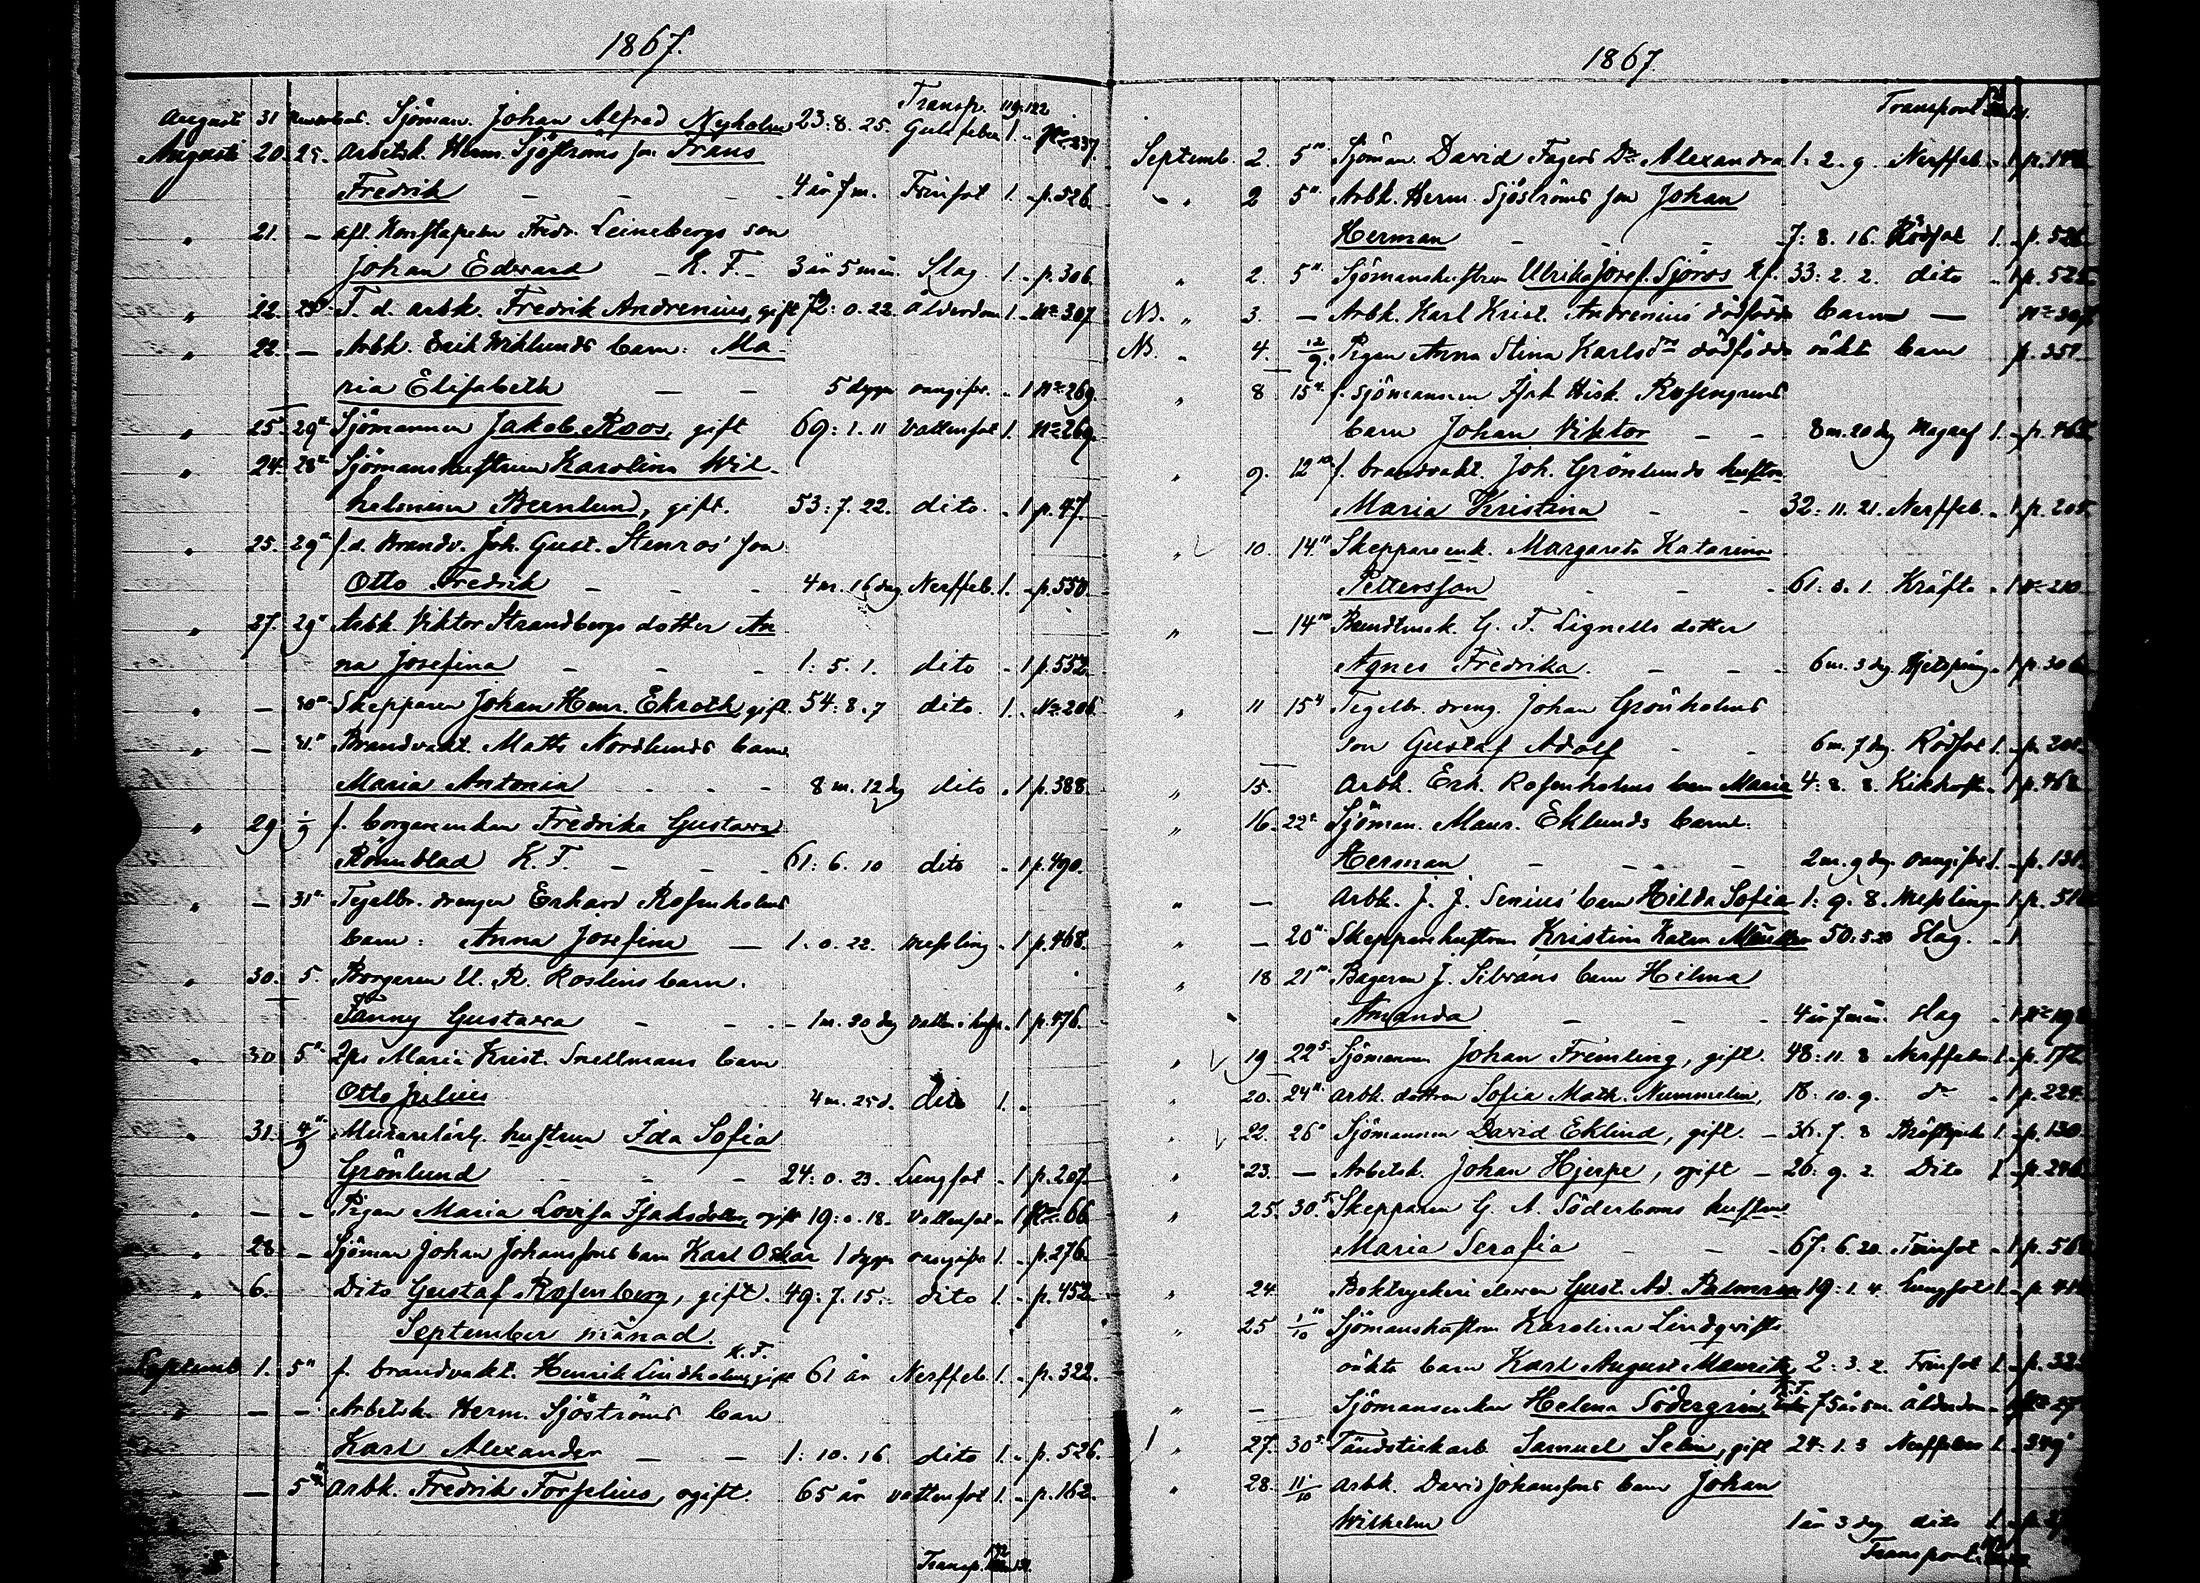 1867.
Transp. 119. 122
Augusti 31 Sjöman. Johan Alfred Nyholm 23: 8. 25. Gulsfeber 1. - No 337.
Augusti 20. 25. Arbetsk. Herm. Sjöströms son Frans
Fredrik - - - 4 år 7 m. Frinfot 1. - p. 526.
" 21. - afl. Konstapeln Fredr. Leinebergs son
Johan Edward - K. F. - 3 år 5 mån. Slag 1. - p. 306.
" 22. F. d. arbk. Fredrik Andrenius, gift 72: 0. 22. Ålderdom 1. - No 307
" 22. - Arbk. Erik Wiklunds barn: Ma-
ria Elisabeth - - 5 dygn oangifv. - 1 No 269.
" 25. 29" Sjömannen Jakob Roos, gift 69: 1. 11 Vattensot 1. No 269.
" 24. 28" Sjömanshustrun Karolina Wil-
helmina Bernlun, gift. 53: 7. 22. dito. - 1 p. 47.
" 25. 29" f.d. Brandv. Joh. Gust. Stenros' son
Otto Fredrik - - - 4 m. 16 dag. Nerffeb. 1. - p. 550.
" 27. 29" Arbk. Viktor Strandbergs dotter An
na Josefina - - - 1: 5. 1. dito - 1 p. 552.
" - 30" Skepparen Johan Henr. Ekroth, gift. 54: 8. 7 dito. 1. - No 206.
" - 31." Brandvakt. Matts Nordlunds barn
Maria Antonia - - - 8 m. 12 dg dito - 1 p. 388.
" 29 1/9 f. borgareenkan Fredrika Gustava
Rönnblad K. F. - - - 61: 6. 10 dito - 1 p. 490.
" - 31" Tegelbr. drengen Erhard Rosenholms
barn: Anna Josefina - 1. 0. 22. messling - 1 p. 468.
" 30. 5. Borgaren U. R. Roslins barn.
Fanny Gustava - - - 1 m. 30 dg vatten i hufv. - 1 p. 476.
" 30 5" Maria Krist. Snellmans barn
Otto Julius 4 m. 25 d. dito 1. -
" 31. 4/9" Murarelärl. hustrun Ida Sofia
Grönlund - - - 24: 0. 23. Lungsot - 1 p. 207.
" - - Pigan Maria Lovisa Isaksdotter, ogift 19: 0. 18. Vattensot - 1 No 66
" 28 - Sjöman Johan Johanssons barn Karl Oskar 1 dygn oangifv 1. - p. 276.
" 6. Dito Gustaf Rosenberg, gift. 49: 7. 15. dito 1. - p. 452.
September månad.
Septemb 1. 5" f. brandvakt. Henrik Lindholm, gift K. F. 61 år Nerffeb. 1. - p. 322.
" - - Arbetsk. Herm. Sjöströms barn
Karl Alexander - - 1: 10. 16. dito 1. - p. 526.
- 5" Arbk. Fredrik Forselius, ogift. 65 år vattensot 1. - p. 162.
Transp. 132 131.
1867.
Transport
Septemb. 2. 5" Sjöman. David Fagers Dr Alexandra 1: 2. 9. Nerffeb. - 1 p.
- " 2 5" Arbk. Herm. Sjöströms son Johan
Herman - - - 7: 8. 16. Rödsot 1. - p. 526
" 2. 5" Sjömanshustrun Ulrika Josef. Sjöros K.f. 33: 2. 2. dito - 1 p. 525
NB. " 3. - Arbk. Karl Krist. Andrenius' dödfödde barn - No 307
NB. " 4. 12/9. Pigan Anna Stina Karlsdr dödfödde oäkta barn p. 351
" 8 15" f. sjömannen Isak Hisk. Rosengrens
barn Johan Viktor - - 8 m. 20 dg Magref 1. - p. 465
" 9. 12" f. brandvakt. Joh. Grönlunds hustru
Maria Kristina - - 32: 11. 21. Nerffeb. - 1 p. 205
" 10. 14" Skeppareenk. Margareta Katarina
Pettersson - - 61: 0. 1. Kräfta - 1 No 210
" - 14" Bundtmak. G. F. Lignells dotter
Agnes Fredrika. - - 6 m. 3 dg. - 1 p. 306
" 11 15" Tegelbr. dreng. Johan Grönholms
son Gustaf Adolf - - 6 m. 7 dg. Rödsot 1. - p. 201
" 15. Arbk. Erh. Rosenholms barn Maria 4: 8. 8. Kikhosta - 1 p. 468
" 16. 22" Sjöman. Maur. Eklunds barn:
Herman - - - 2 m. 9 dg. oangifvet 1. - p. 131
" - Arbk. J. J. Senius' barn Hilda Sofia 1: 9. 8. Messling - 1 p.
" - 20" Skepparehustrun Kristina Katar. Müller 50: 5. 20 Slag. - 1
" 18 21" Bagaren J. Silvans barn Hilma
Amanda - - - 4 år 7 mån. Slag - 1 No
" 19 22" Sjömannen Johan Fremling, gift. 48: 11. 8 Nerffeber 1. - p. 172
" 20. 24" arbk. dottren Sofia Math. Nummelin, 18. 10. 9. do - 1 p. 224
" 22. 26" Sjömannen David Eklund, gift. - 36. 7. 8 Bröstsjuk 1. - p. 130
" 23. - Arbetsk. Johan Hjerpe, ogift - 26: 9. 2. Dito 1 - p. 246
" 25. 30" Skepparen G. A. Söderboms hustru
Maria Serafia - - - 67. 6. 20. Frinsot - 1 p.
" 24. Boktryckeri eleven Gust. Ad. Palmroos 19: 1. 4. Lungsot 1. - p.
" 25 1/10 Sjömanshustrun Karolina Lindqvists
oäkta barn Karl August Mauritz 2: 3. 2. Frinsot 1. - p.
" - Sjömansenkan Helena Södergrén, K.F. 75 år 5 m. Ålderdom - No
1 " 27. 30" Tändstickarb. Samuel Selin, gift 24: 1. 3 Nerffeber 1. - 349
" 28. 11/10 Arbk. David Johanssons barn Johan
Wilhelm 1 år 3 dg dito 1. - p.
Transport.